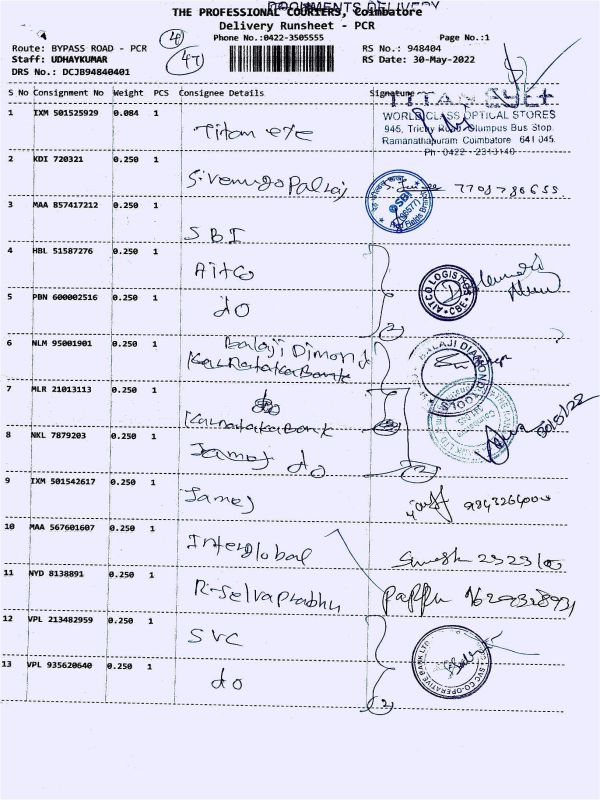 DOCUMENTS DELIVERY
THE PROFESSIONAL COURIERS, Coimbatore
Delivery Runsheet - PCR
Phone No.:0422-3505555 Page No.:1
Route: BYPASS ROAD - PCR RS No.: 948404
Staff: UDHAYKUMAR RS Date: 30-May-2022
DRS No.: DCJB94840401
4
47
S No Consignment No Weight PCS Consignee Details Signature
TITAN EYE+
WORLD CLASS OPTICAL STORES
945, Trichy Road, Olumpus Bus Stop.
Ramanathapuram Coimbatore 641 045.
Ph 0422 - 2313140
1 IXM 501525929 0.084 1 Titan eye
2 KDI 720321 0.250 1 Sivenugopalraj
3 MAA 857417212 0.250 1 SBI
SBI
4 HBL 51587276 0.250 1 AitCo
AITCO LOGISTICS
CBE
5 PBN 600002516 0.250 1 do
2
6 NLM 95001901 0.250 1 Balaji Dimond
Karnataka Bank
BALAJI DIAMOND TOOLS
7 MLR 21013113 0.250 1 do
Karnataka Bank
8 NKL 7879203 0.250 1 James do
2
30/5/22
9 IXM 501542617 0.250 1 James
10 MAA 567601607 0.250 1 Interglobal
11 NYD 8138891 0.250 1 R. Selvaprabhu Pappu
12 VPL 213482959 0.250 1 SVC
SVC CO-OPERATIVE BANK LTD
13 VPL 935620640 0.250 1 do
2